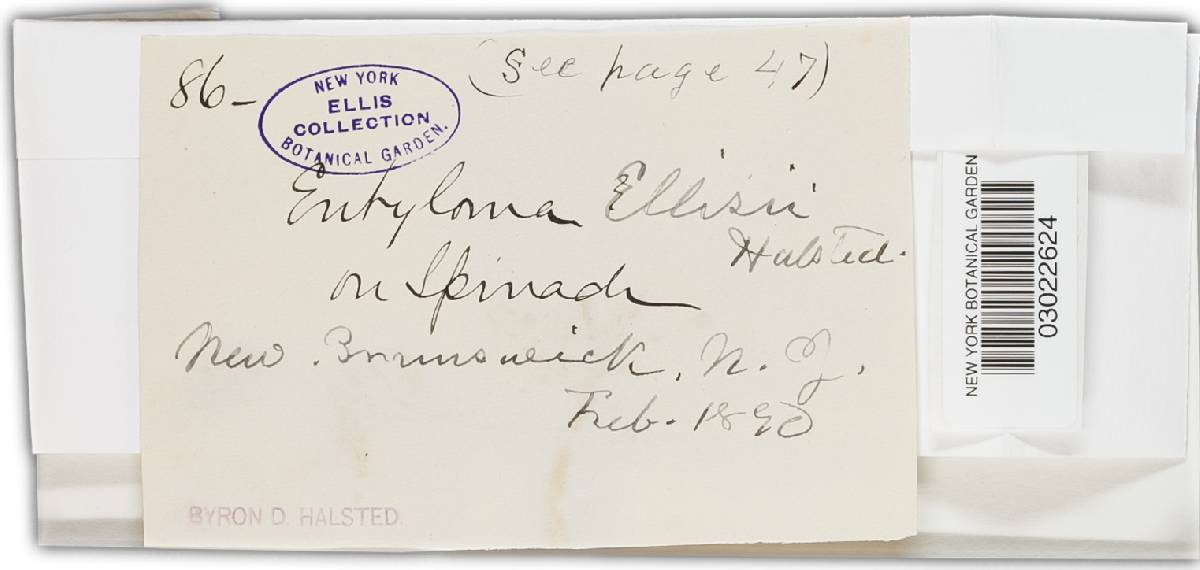 86- (See page 47)
NEW YORK
ELLIS
COLLECTION
BOTANICAL GARDEN.
Entyloma Ellisii
Halsted.
on Spinach
New Brunswick, N. J.
Feb. 1890
BYRON D. HALSTED.
NEW YORK BOTANICAL GARDEN
03022624